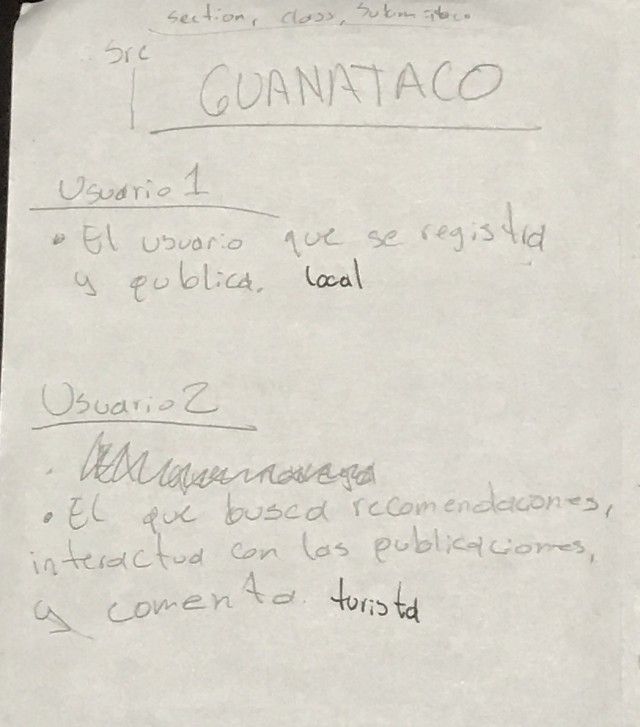 section, class,
Src
GUANATACO
Usuario 1
• El usuario que se registra
y publica. local
Usuario 2
• El que busca recomendaciones,
interactua con las publicaciones,
y comenta. turista